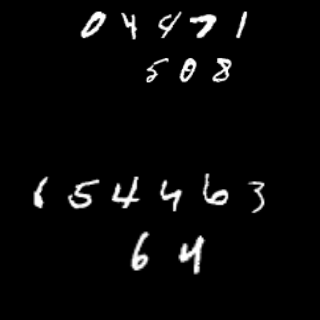 04471
508
154463
64